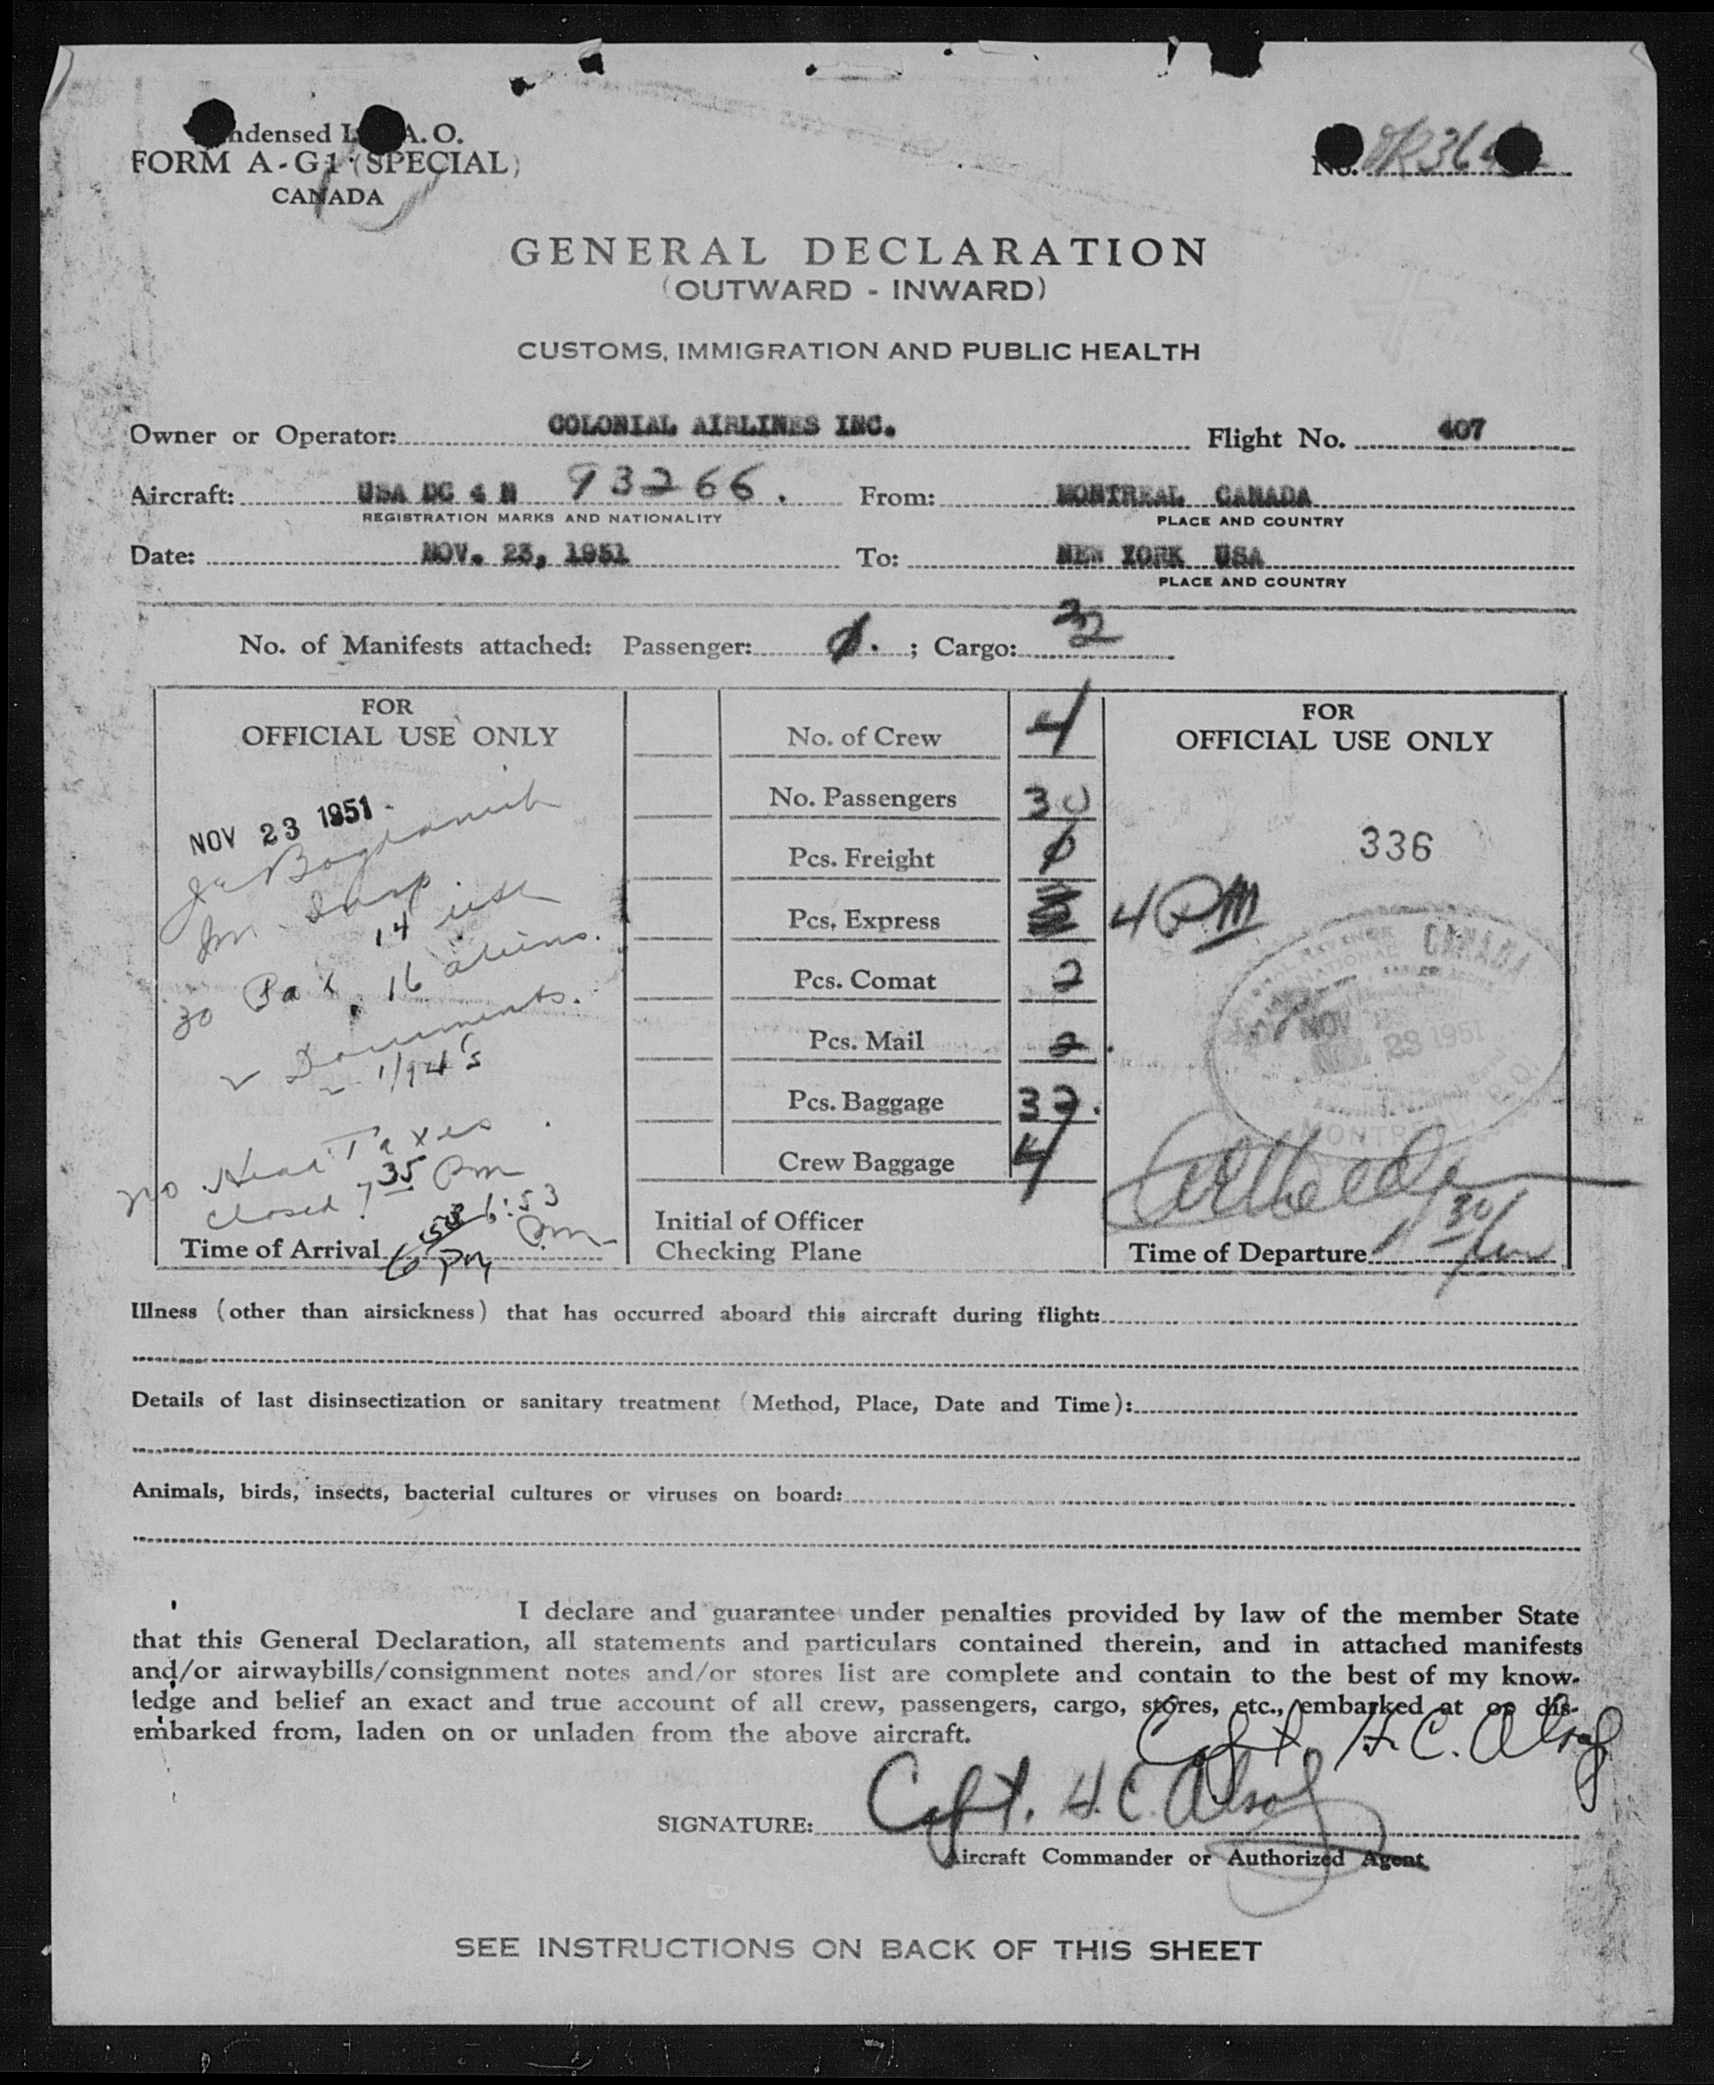 ndensed I A. O.
FORM A - G1 (SPECIAL)
CANADA
No.
GENERAL DECLARATION
(OUTWARD - INWARD)
CUSTOMS, IMMIGRATION AND PUBLIC HEALTH
Owner or Operator: COLONIAL AIRLINES INC. Flight No. 407
Aircraft: USA DC 4 N 93266. From: MONTREAL CANADA
REGISTRATION MARKS AND NATIONALITY PLACE AND COUNTRY
Date: NOV. 23, 1951 To: NEW YORK USA
PLACE AND COUNTRY
No. of Manifests attached: Passenger: ; Cargo:
FOR
OFFICIAL USE ONLY
NOV 23 1951
30 Pax. 14 usa
16 aliens.
Documents.
1/94's
No Head Taxes
Closed 7 35 Pm
6:53
Pm
Time of Arrival 6 53 Pm
No. of Crew 4
No. Passengers 30
Pcs. Freight 0
Pcs. Express
Pcs. Comat 2
Pcs. Mail 2
Pcs. Baggage 32.
Crew Baggage 4
Initial of Officer
Checking Plane
FOR
OFFICIAL USE ONLY
336
4 PM
CANADA
NATIONAL
NOV 23 1951
MONTREAL
Time of Departure
Illness (other than airsickness) that has occurred aboard this aircraft during flight:
Details of last disinsectization or sanitary treatment (Method, Place, Date and Time):
Animals, birds, insects, bacterial cultures or viruses on board:
I declare and guarantee under penalties provided by law of the member State
that this General Declaration, all statements and particulars contained therein, and in attached manifests
and/or airwaybills/consignment notes and/or stores list are complete and contain to the best of my know-
ledge and belief an exact and true account of all crew, passengers, cargo, stores, etc., embarked at or dis-
embarked from, laden on or unladen from the above aircraft.
Capt. H. C.
SIGNATURE: Capt. H. C.
Aircraft Commander or Authorized Agent
SEE INSTRUCTIONS ON BACK OF THIS SHEET